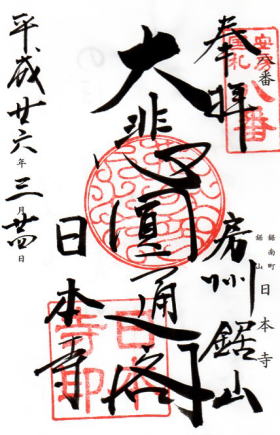 奉拝
安房
巡礼
八番
八番
房州鋸山
鋸南町
鋸山
日本寺
大悲圓通閣
日本寺
日本寺印
平成廿六年三月廿四日